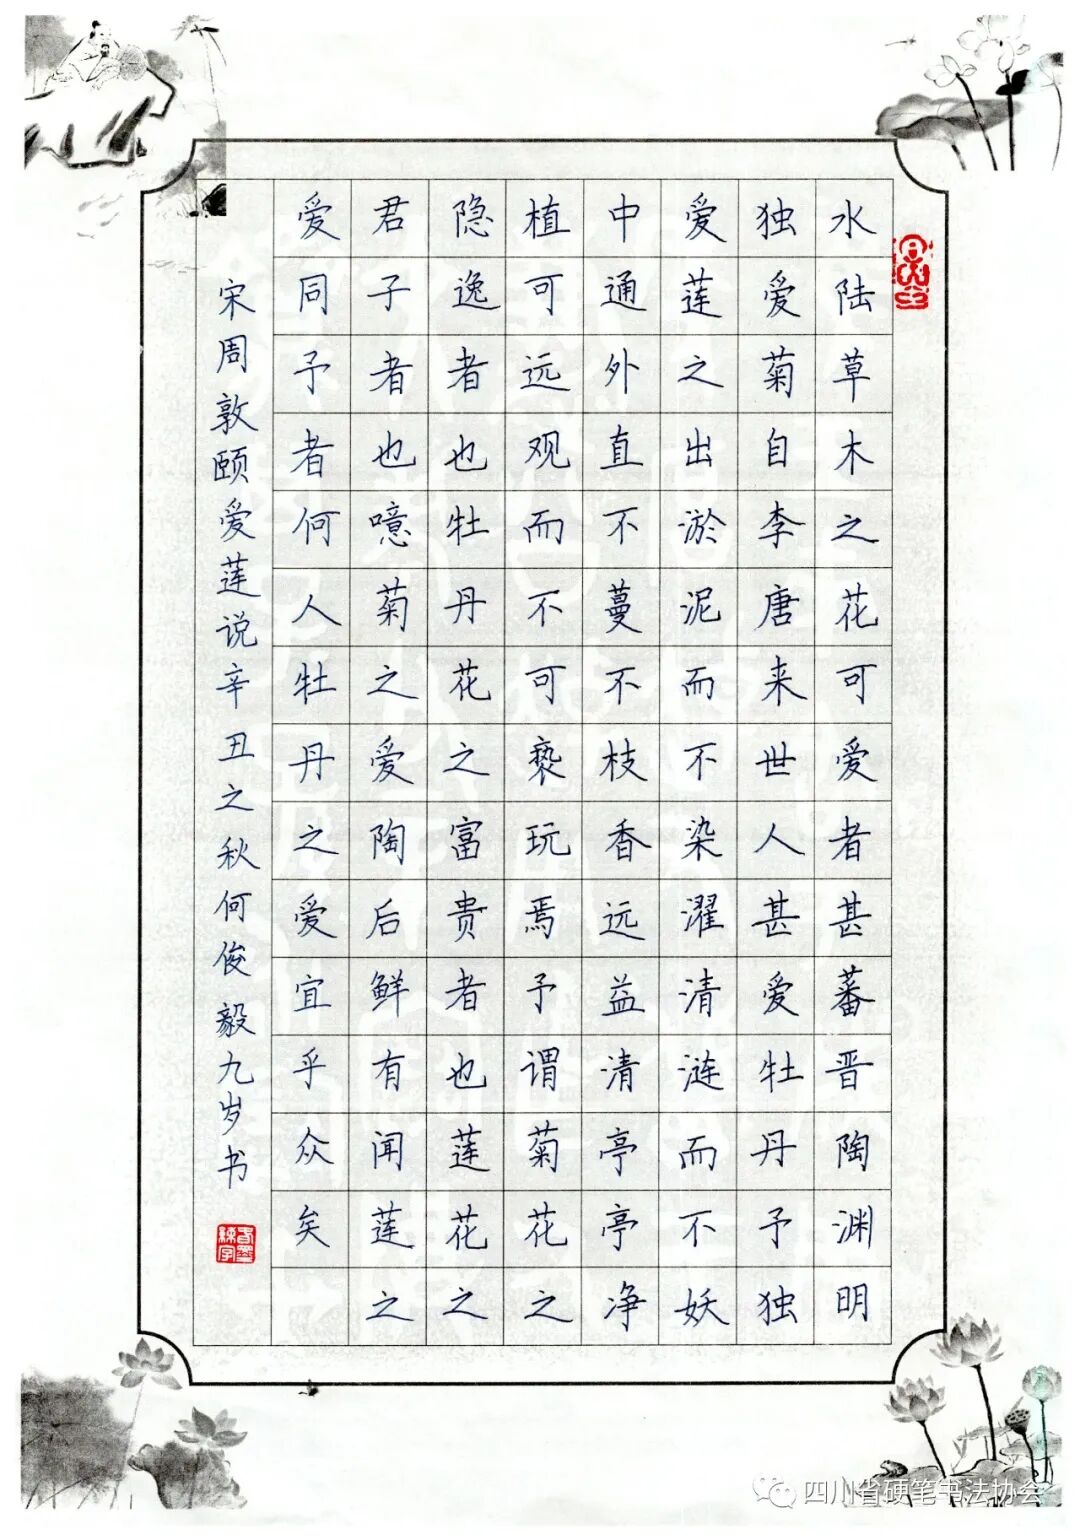 水陆草木之花可爱者甚蕃晋陶渊明
独爱菊自李唐来世人甚爱牡丹予独
爱莲之出淤泥而不染濯清涟而不妖
中通外直不蔓不枝香远益清亭亭净
植可远观而不可亵玩焉予谓菊花之
隐逸者也牡丹花之富贵者也莲花之
君子者也噫菊之爱陶后鲜有闻莲之
爱同予者何人牡丹之爱宜乎众矣
宋周敦颐爱莲说辛丑之秋何俊毅九岁书
四川省硬笔书法协会